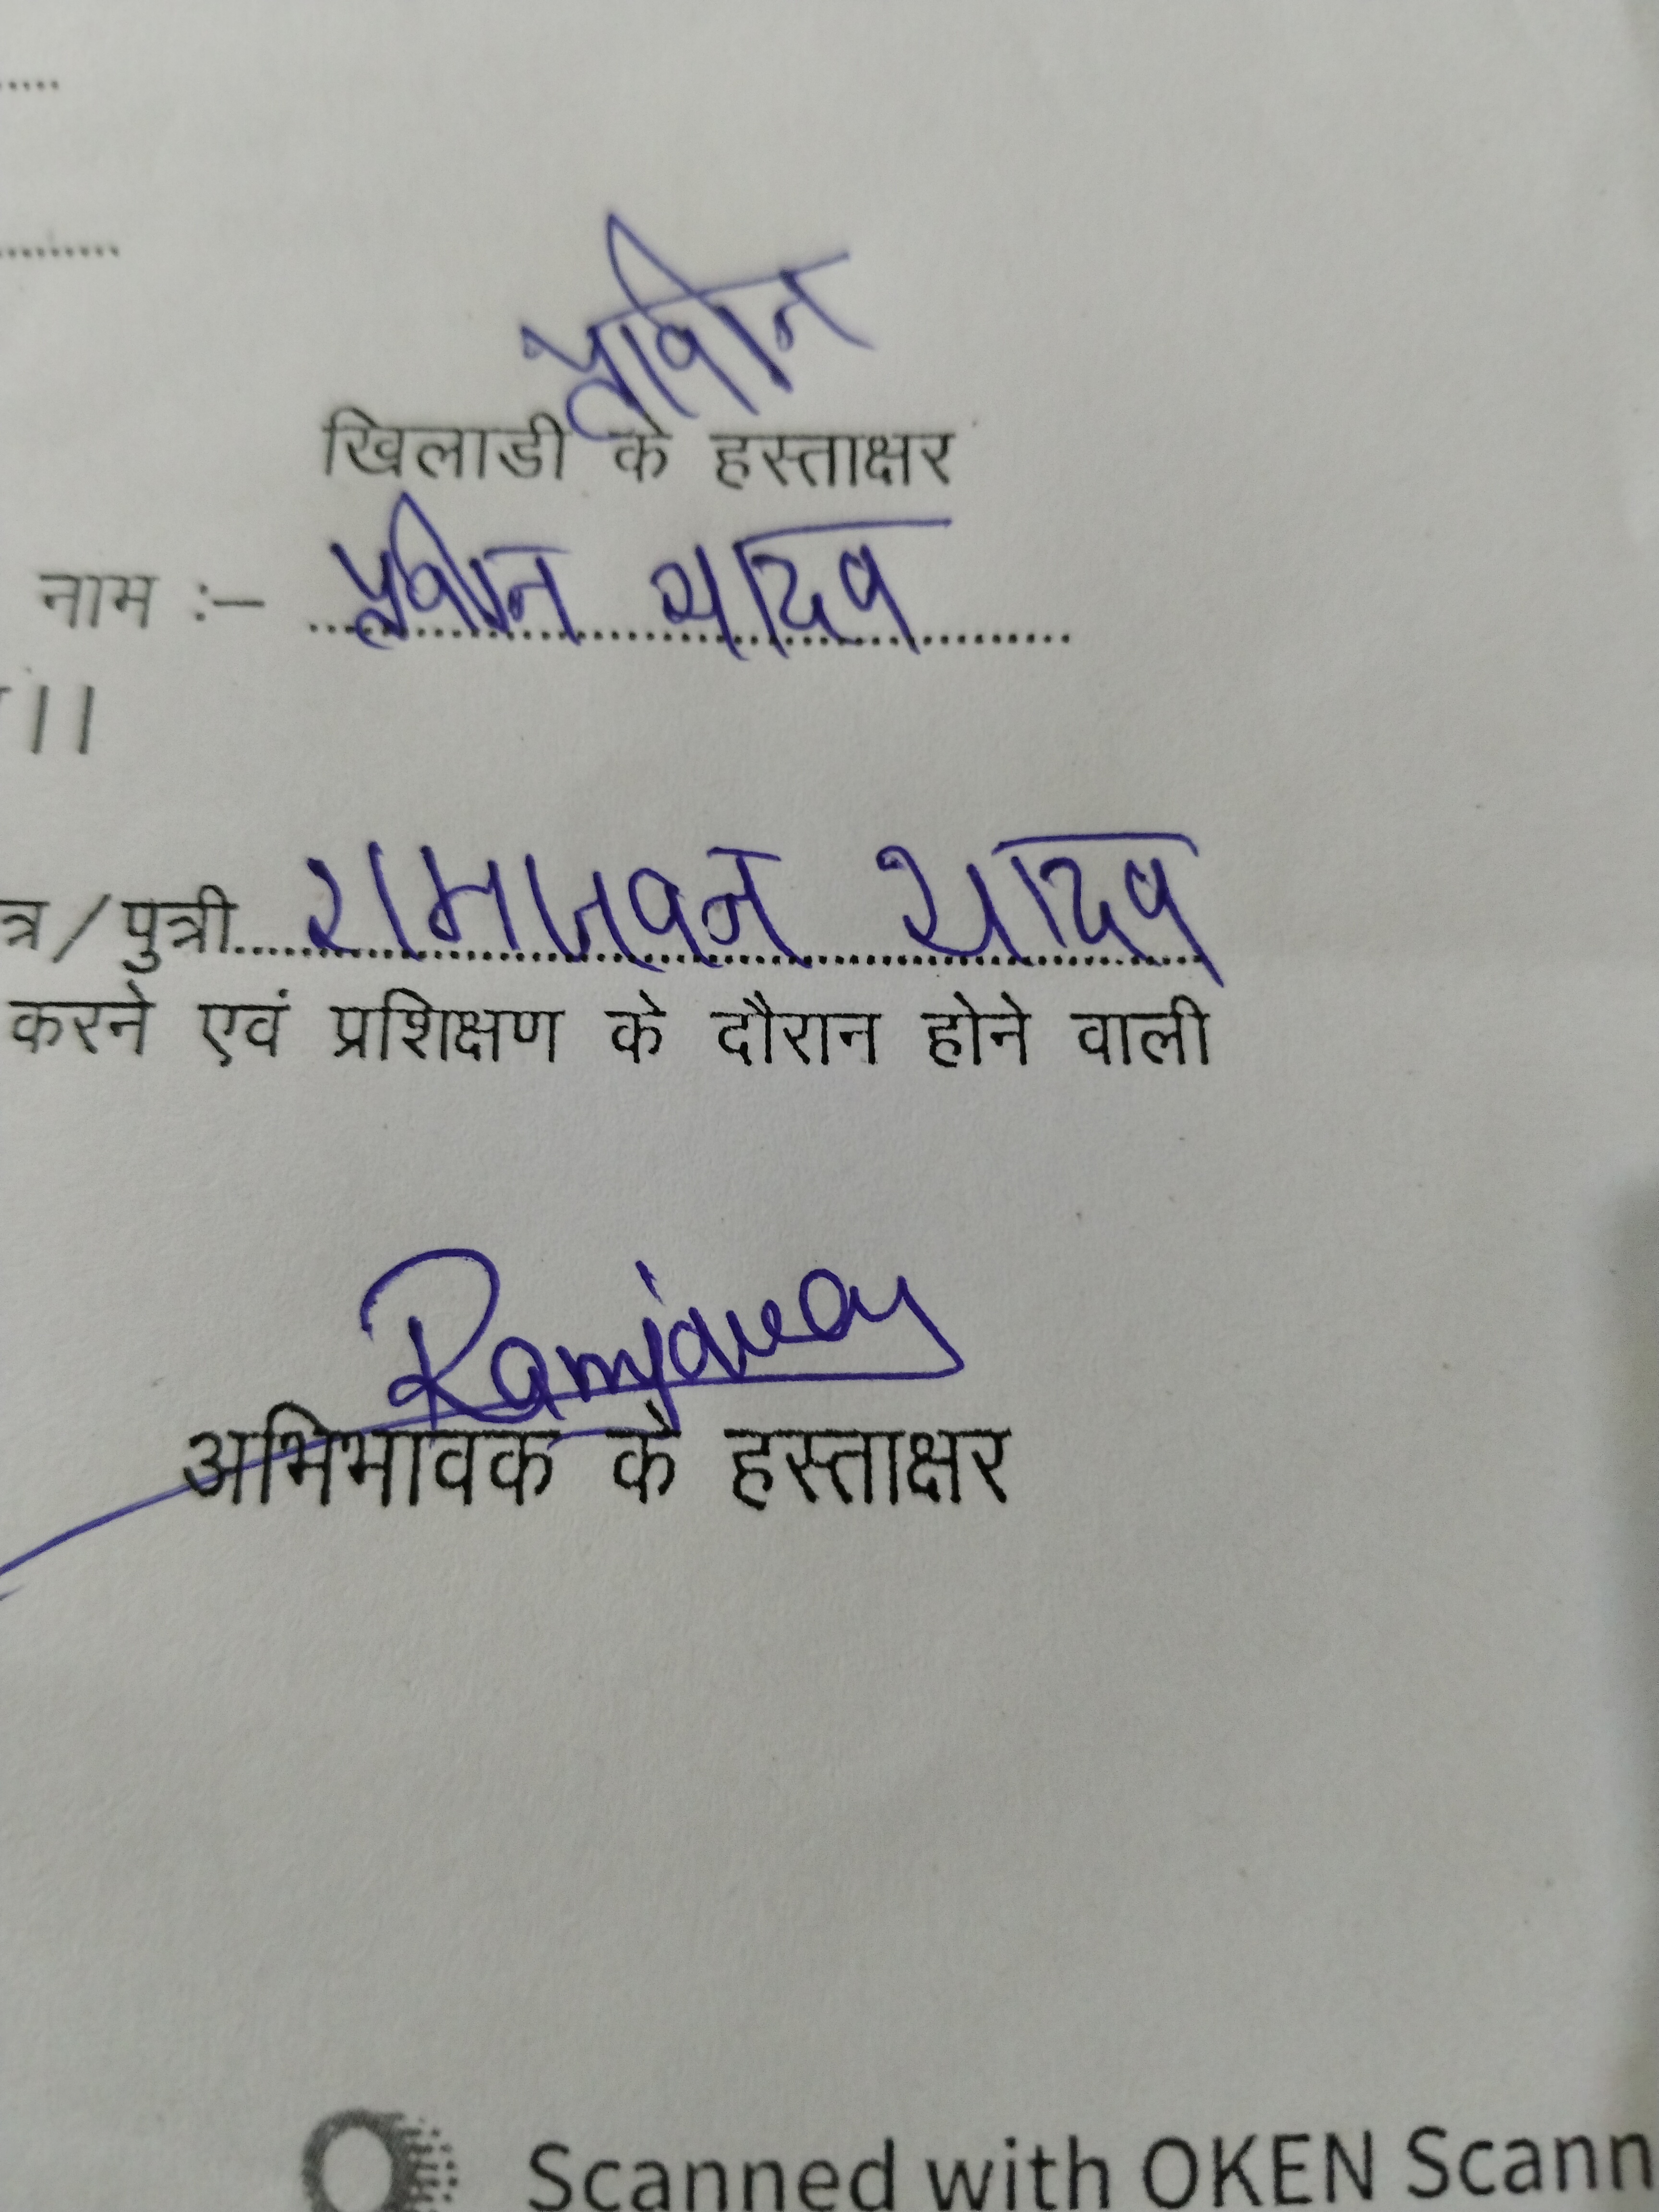 प्रविन
खिलाडी के हस्ताक्षर
नाम :- प्रविन यादव
।।
त्र/पुत्री रामजवन यादव
करने एवं प्रशिक्षण के दौरान होने वाली
Ramjavan
अभिभावक के हस्ताक्षर
Scanned with OKEN Scann